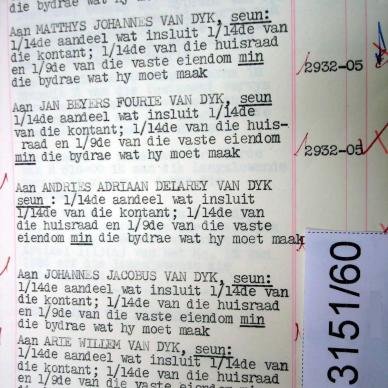 die bydrae wat hy moet maak
Aan MATTHYS JOHANNES VAN DYK, seun:
1/14de aandeel wat insluit 1/14de van
die kontant; 1/14de van die huisraad
en 1/9de van die vaste eiendom min
die bydrae wat hy moet maak
2932-05
Aan JAN BEYERS FOURIE VAN DYK, seun
1/14de aandeel wat insluit 1/14de
van die kontant; 1/14de van die huis-
raad en 1/9de van die vaste eiendom
min die bydrae wat hy moet maak
2932-05
Aan ANDRIES ADRIAAN DELAREY VAN DYK
seun : 1/14de aandeel wat insluit
1/14de van die kontant; 1/14de van
die huisraad en 1/9de van die vaste
eiendom min die bydrae wat hy moet maak
Aan JOHANNES JACOBUS VAN DYK, seun:
1/14de aandeel wat insluit 1/14de van
die kontant; 1/14de van die huisraad
en 1/9de van die vaste eiendom min
die bydrae wat hy moet maak
Aan ARIE WILLEM VAN DYK, seun:
1/14de aandeel wat insluit 1/14de van
die kontant; 1/14de van die huisraad
en 1/9de van die vaste eiendom min
3151/60